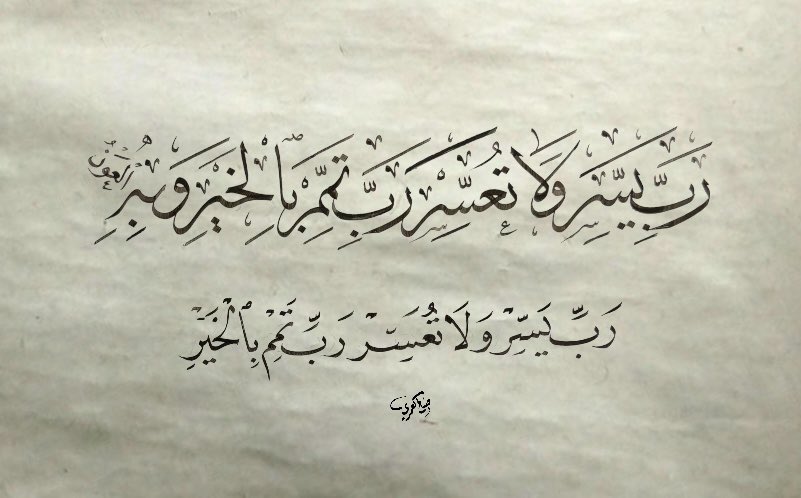 رَبِّ يَسِّرْ وَلَا تُعَسِّرْ رَبِّ تَمِّمْ بِالْخَيْرِ وَبِهِ الْعَوْنُ
رَبِّ يَسِّرْ وَلَا تُعَسِّرْ رَبِّ تَمِّمْ بِالْخَيْرِ